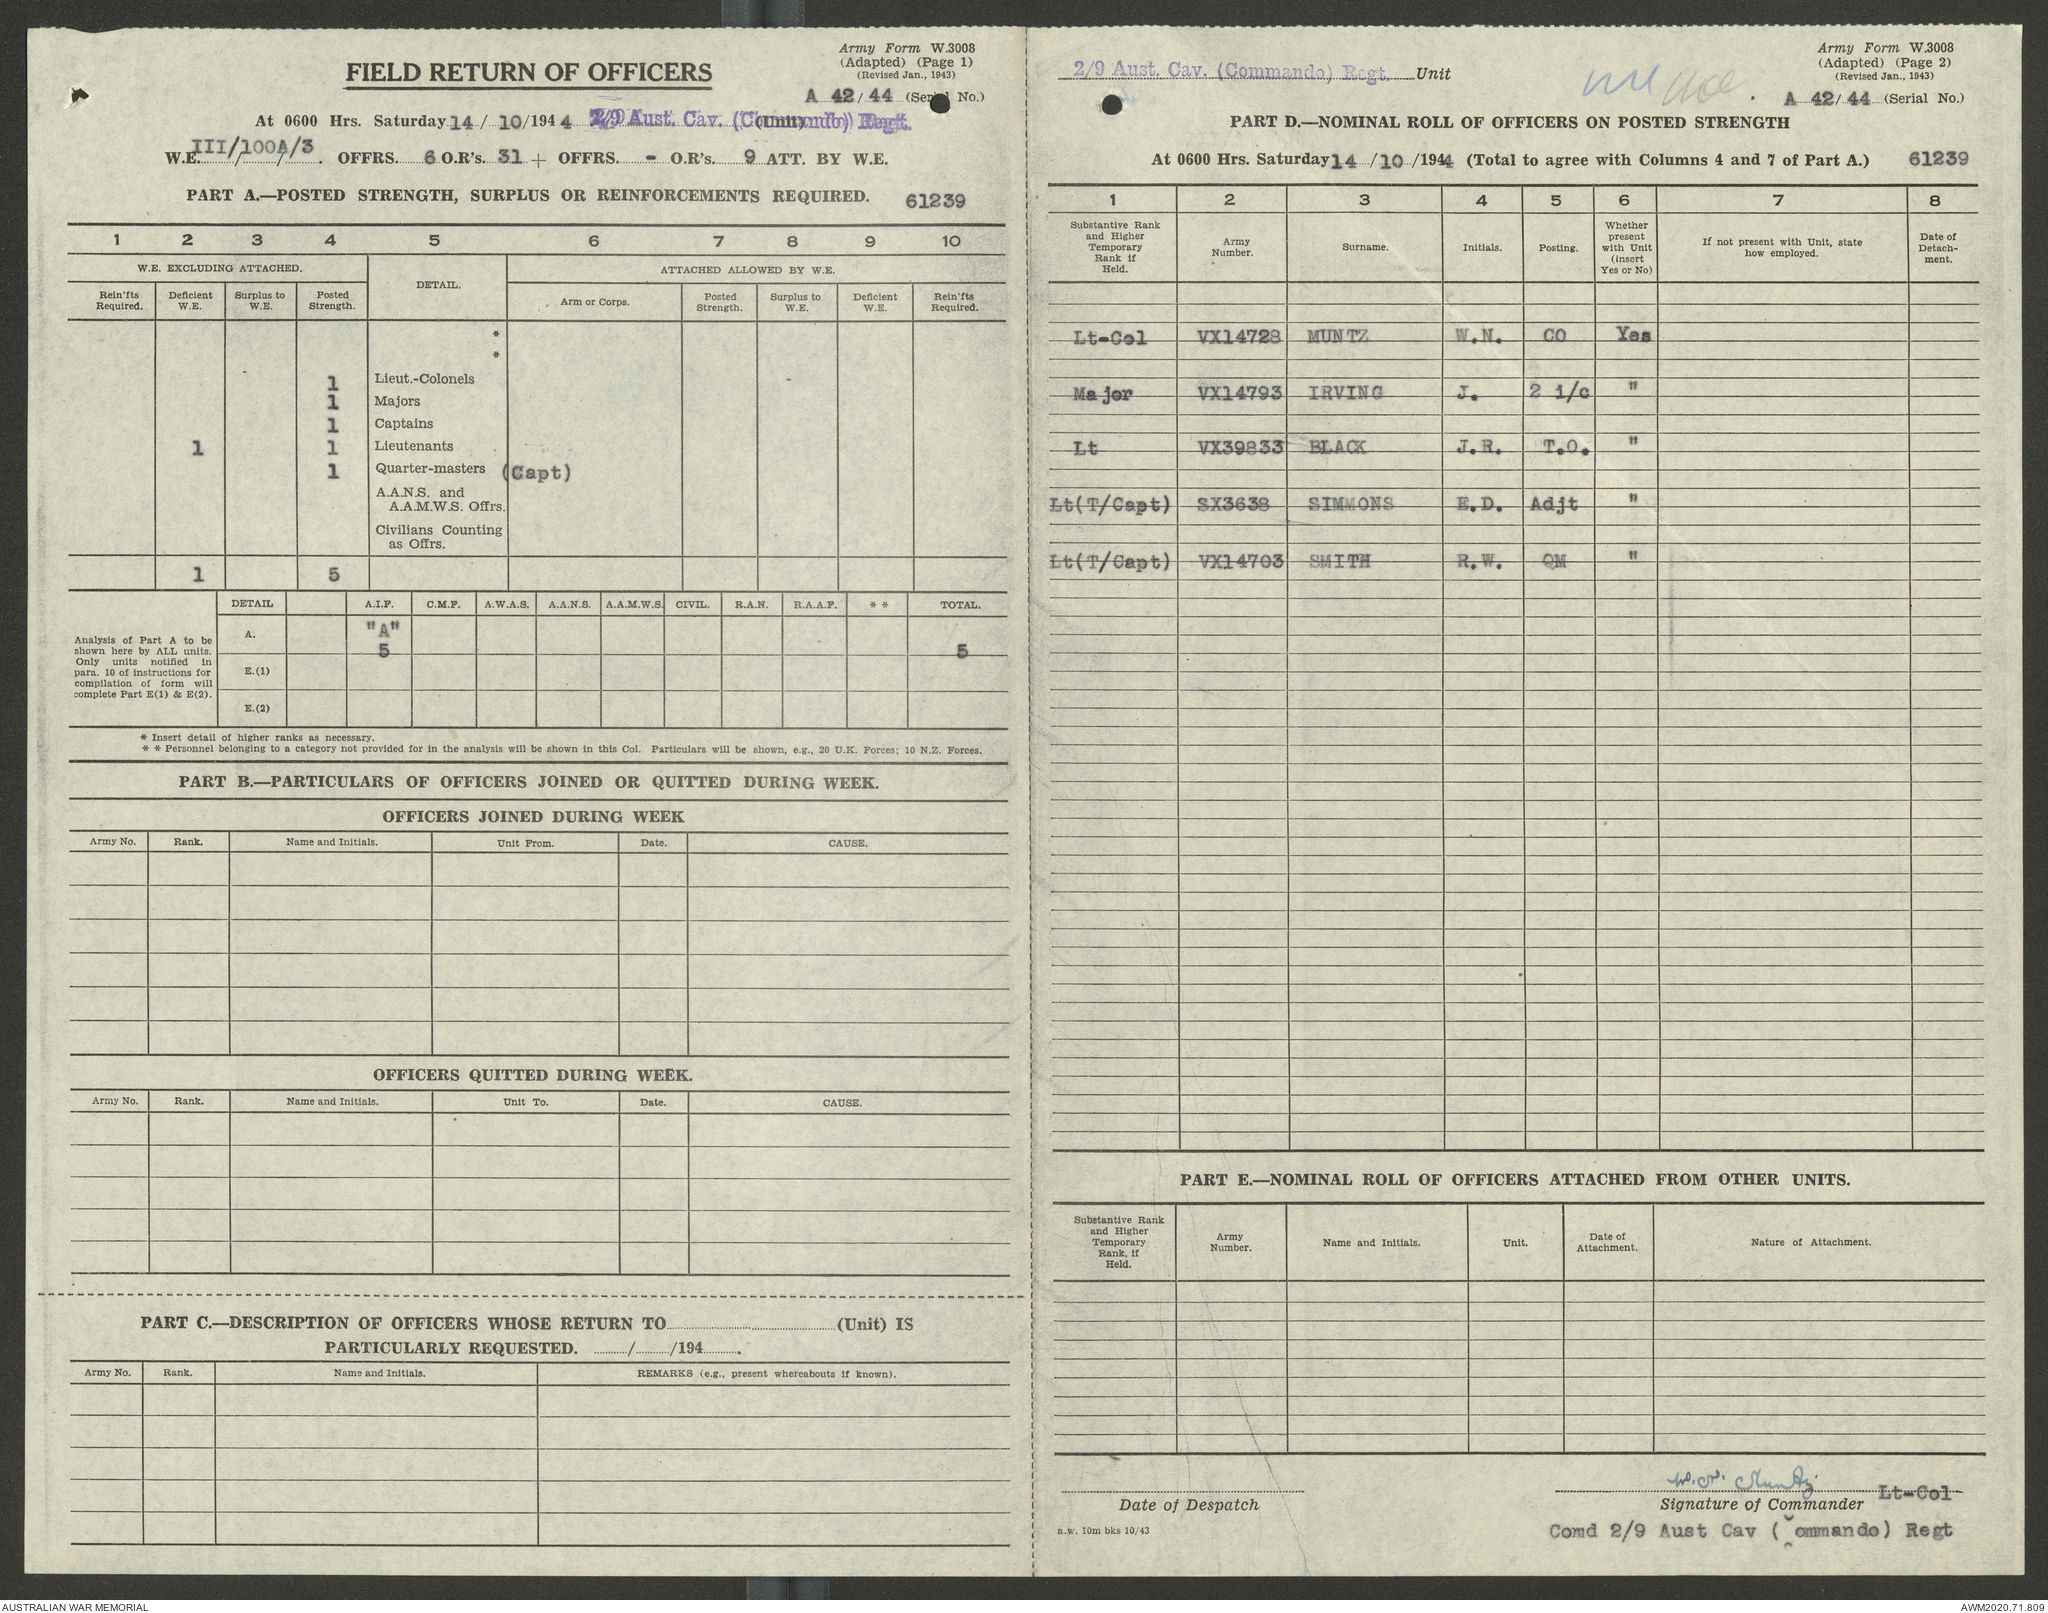 Army Form W.3008
(Adapted) (Page 1)
(Revised Jan., 1943)
FIELD RETURN OF OFFICERS
A 42/44 (Serial No.)
At 0600 Hrs. Saturday 14/10/1944 2/9 Aust. Cav. (Commando) Regt. (Unit)
W.E. III/100A/3. OFFRS. 6 O.R's. 31 + OFFRS. - O.R's. 9 ATT. BY W.E.
PART A.—POSTED STRENGTH, SURPLUS OR REINFORCEMENTS REQUIRED. 61239
1 2 3 4 5 6 7 8 9 10
W.E. EXCLUDING ATTACHED. DETAIL. ATTACHED ALLOWED BY W.E.
Rein'fts Required. Deficient W.E. Surplus to W.E. Posted Strength. Arm or Corps. Posted Strength. Surplus to W.E. Deficient W.E. Rein'fts Required.
*
*
1 Lieut.-Colonels
1 Majors
1 Captains
1 1 Lieutenants
1 Quarter-masters (Capt)
A.A.N.S. and
A.A.M.W.S. Offrs.
Civilians Counting
as Offrs.
1 5
DETAIL A.I.F. C.M.F. A.W.A.S. A.A.N.S. A.A.M.W.S. CIVIL. R.A.N. R.A.A.F. * * TOTAL.
Analysis of Part A to be
shown here by ALL units.
Only units notified in
para. 10 of instructions for
compilation of form will
complete Part E(1) & E(2).
A. "A"
5 5
E.(1)
E.(2)
* Insert detail of higher ranks as necessary.
* * Personnel belonging to a category not provided for in the analysis will be shown in this Col. Particulars will be shown, e.g., 20 U.K. Forces; 10 N.Z. Forces.
PART B.—PARTICULARS OF OFFICERS JOINED OR QUITTED DURING WEEK.
OFFICERS JOINED DURING WEEK
Army No. Rank. Name and Initials. Unit From. Date. CAUSE.
OFFICERS QUITTED DURING WEEK.
Army No. Rank. Name and Initials. Unit To. Date. CAUSE.
PART C.—DESCRIPTION OF OFFICERS WHOSE RETURN TO (Unit) IS
PARTICULARLY REQUESTED. / /194 .
Army No. Rank. Name and Initials. REMARKS (e.g., present whereabouts if known).
2/9 Aust. Cav. (Commando) Regt. Unit
Army Form W.3008
(Adapted) (Page 2)
(Revised Jan., 1943)
A 42/44 (Serial No.)
PART D.—NOMINAL ROLL OF OFFICERS ON POSTED STRENGTH
At 0600 Hrs. Saturday 14/10/1944 (Total to agree with Columns 4 and 7 of Part A.) 61239
1 2 3 4 5 6 7 8
Substantive Rank and Higher Temporary Rank if Held. Army Number. Surname. Initials. Posting. Whether present with Unit (insert Yes or No) If not present with Unit, state how employed. Date of Detach-ment.
Lt-Col VX14728 MUNTZ W.N. CO Yes
Major VX14793 IRVING J. 2 i/c "
Lt VX39833 BLACK J.R. T.O. "
Lt(T/Capt) SX3638 SIMMONS E.D. Adjt "
Lt(T/Capt) VX14703 SMITH R.W. QM "
PART E.—NOMINAL ROLL OF OFFICERS ATTACHED FROM OTHER UNITS.
Substantive Rank and Higher Temporary Rank, if Held. Army Number. Name and Initials. Unit. Date of Attachment. Nature of Attachment.
W. N. Muntz
Lt-Col
Date of Despatch Signature of Commander
a.w. 10m bks 10/43
Comd 2/9 Aust Cav (Commando) Regt
AUSTRALIAN WAR MEMORIAL AWM2020.71.809